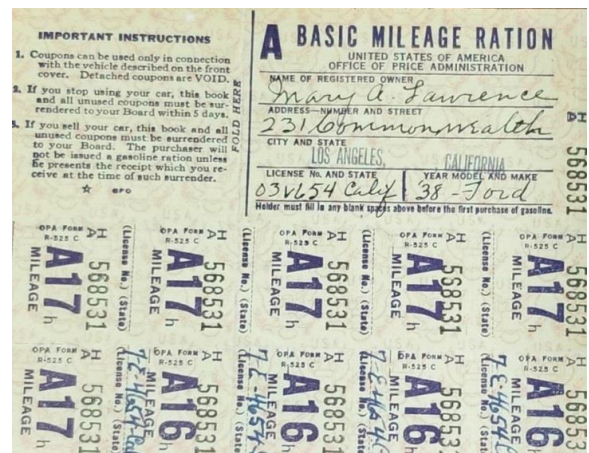 IMPORTANT INSTRUCTIONS
1. Coupons can be used only in connection
with the vehicle described on the front
cover. Detached coupons are VOID.
2. If you stop using your car, this book
and all unused coupons must be sur-
rendered to your Board within 5 days.
3. If you sell your car, this book and all
unused coupons must be surrendered
to your Board. The purchaser will
not be issued a gasoline ration unless
he presents the receipt which you re-
ceive at the time of such surrender.
☆ GPO
FOLD HERE
A BASIC MILEAGE RATION
UNITED STATES OF AMERICA
OFFICE OF PRICE ADMINISTRATION
NAME OF REGISTERED OWNER
Mary A. Lawrence
ADDRESS—NUMBER AND STREET
231 Commonwealth
CITY AND STATE
LOS ANGELES, CALIFORNIA
LICENSE No. AND STATE YEAR MODEL AND MAKE
03V654 Calif 38 - Ford
Holder must fill in any blank spaces above before the first purchase of gasoline.
AH 568531
OPA FORM R-525 C MILEAGE A17 h AH 568531 (License No.) (State)
OPA FORM R-525 C MILEAGE A17 h AH 568531 (License No.) (State)
OPA FORM R-525 C MILEAGE A17 h AH 568531 (License No.) (State)
OPA FORM R-525 C MILEAGE A17 h AH 568531 (License No.) (State)
OPA FORM R-525 C MILEAGE A17 h AH 568531
OPA FORM R-525 C MILEAGE A17 h AH 568531 (License No.) (State)
OPA FORM R-525 C MILEAGE A16 h AH 568531 (License No.) (State)
OPA FORM R-525 C MILEAGE A16 h AH 568531 (License No.) (State)
OPA FORM R-525 C MILEAGE A16 h AH 568531 (License No.) (State)
OPA FORM R-525 C MILEAGE A16 h AH 568531